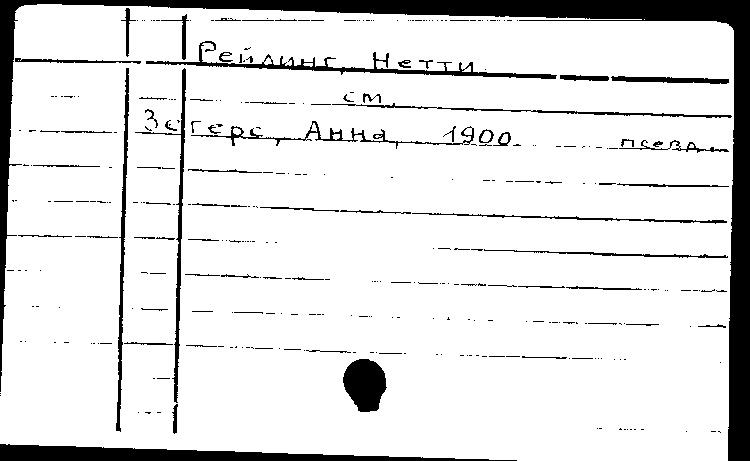 Рейлинг, Нетти
см.
Зегерс, Анна, 1900 псевд.